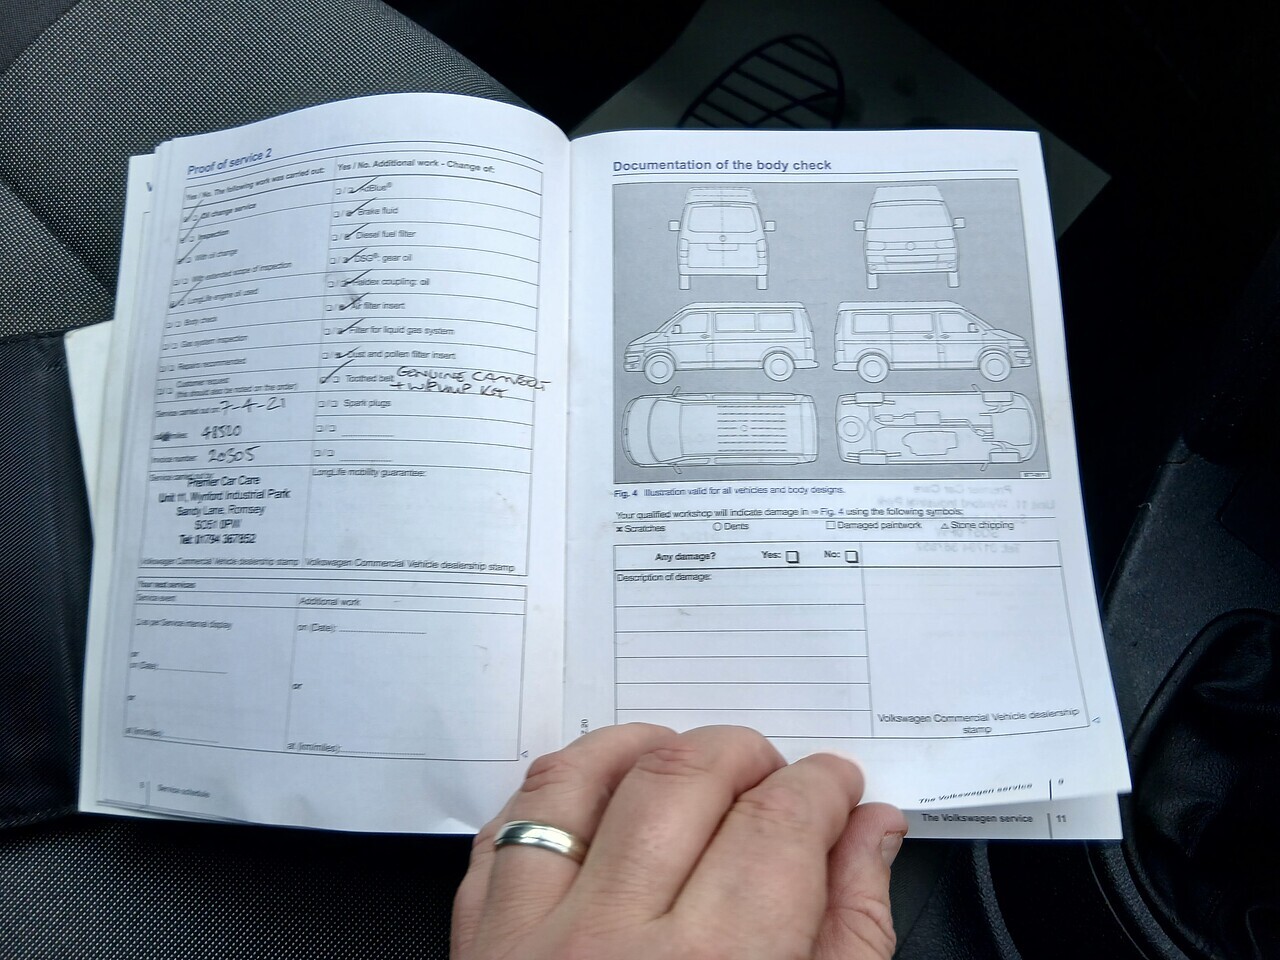 Proof of service 2
Yes / No. The following work was carried out:
Oil change service
Inspection
With oil change
With extended scope of inspection
LongLife engine oil used
Body check
Gas system inspection
Repairs recommended
Customer request
(this should also be noted on the order)
Service carried out on 7-4-21
miles: 48520
Invoice number: 20505
Service carried out by:
Premier Car Care
Unit 11, Wynford Industrial Park
Sandy Lane, Romsey
SO51 0PW
Tel: 01794 367852
Volkswagen Commercial Vehicle dealership stamp
Yes / No. Additional work - Change of:
AdBlue®
Brake fluid
Diesel fuel filter
DSG®: gear oil
Haldex coupling: oil
Air filter insert
Filter for liquid gas system
Dust and pollen filter insert
Toothed belt GENUINE CAMBELT
+ W/PUMP KIT
Spark plugs
LongLife mobility guarantee:
Volkswagen Commercial Vehicle dealership stamp
Your next services
Service event
as per Service interval display
or
on (Date):
or
at (km/miles):
Additional work
on (Date):
or
at (km/miles):
8 Service schedule
Documentation of the body check
Fig. 4 Illustration valid for all vehicles and body designs.
Your qualified workshop will indicate damage in ⇒ Fig. 4 using the following symbols:
× Scratches ○ Dents □ Damaged paintwork △ Stone chipping
Any damage? Yes: No:
Description of damage:
Volkswagen Commercial Vehicle dealership
stamp
The Volkswagen service 9
The Volkswagen service 11